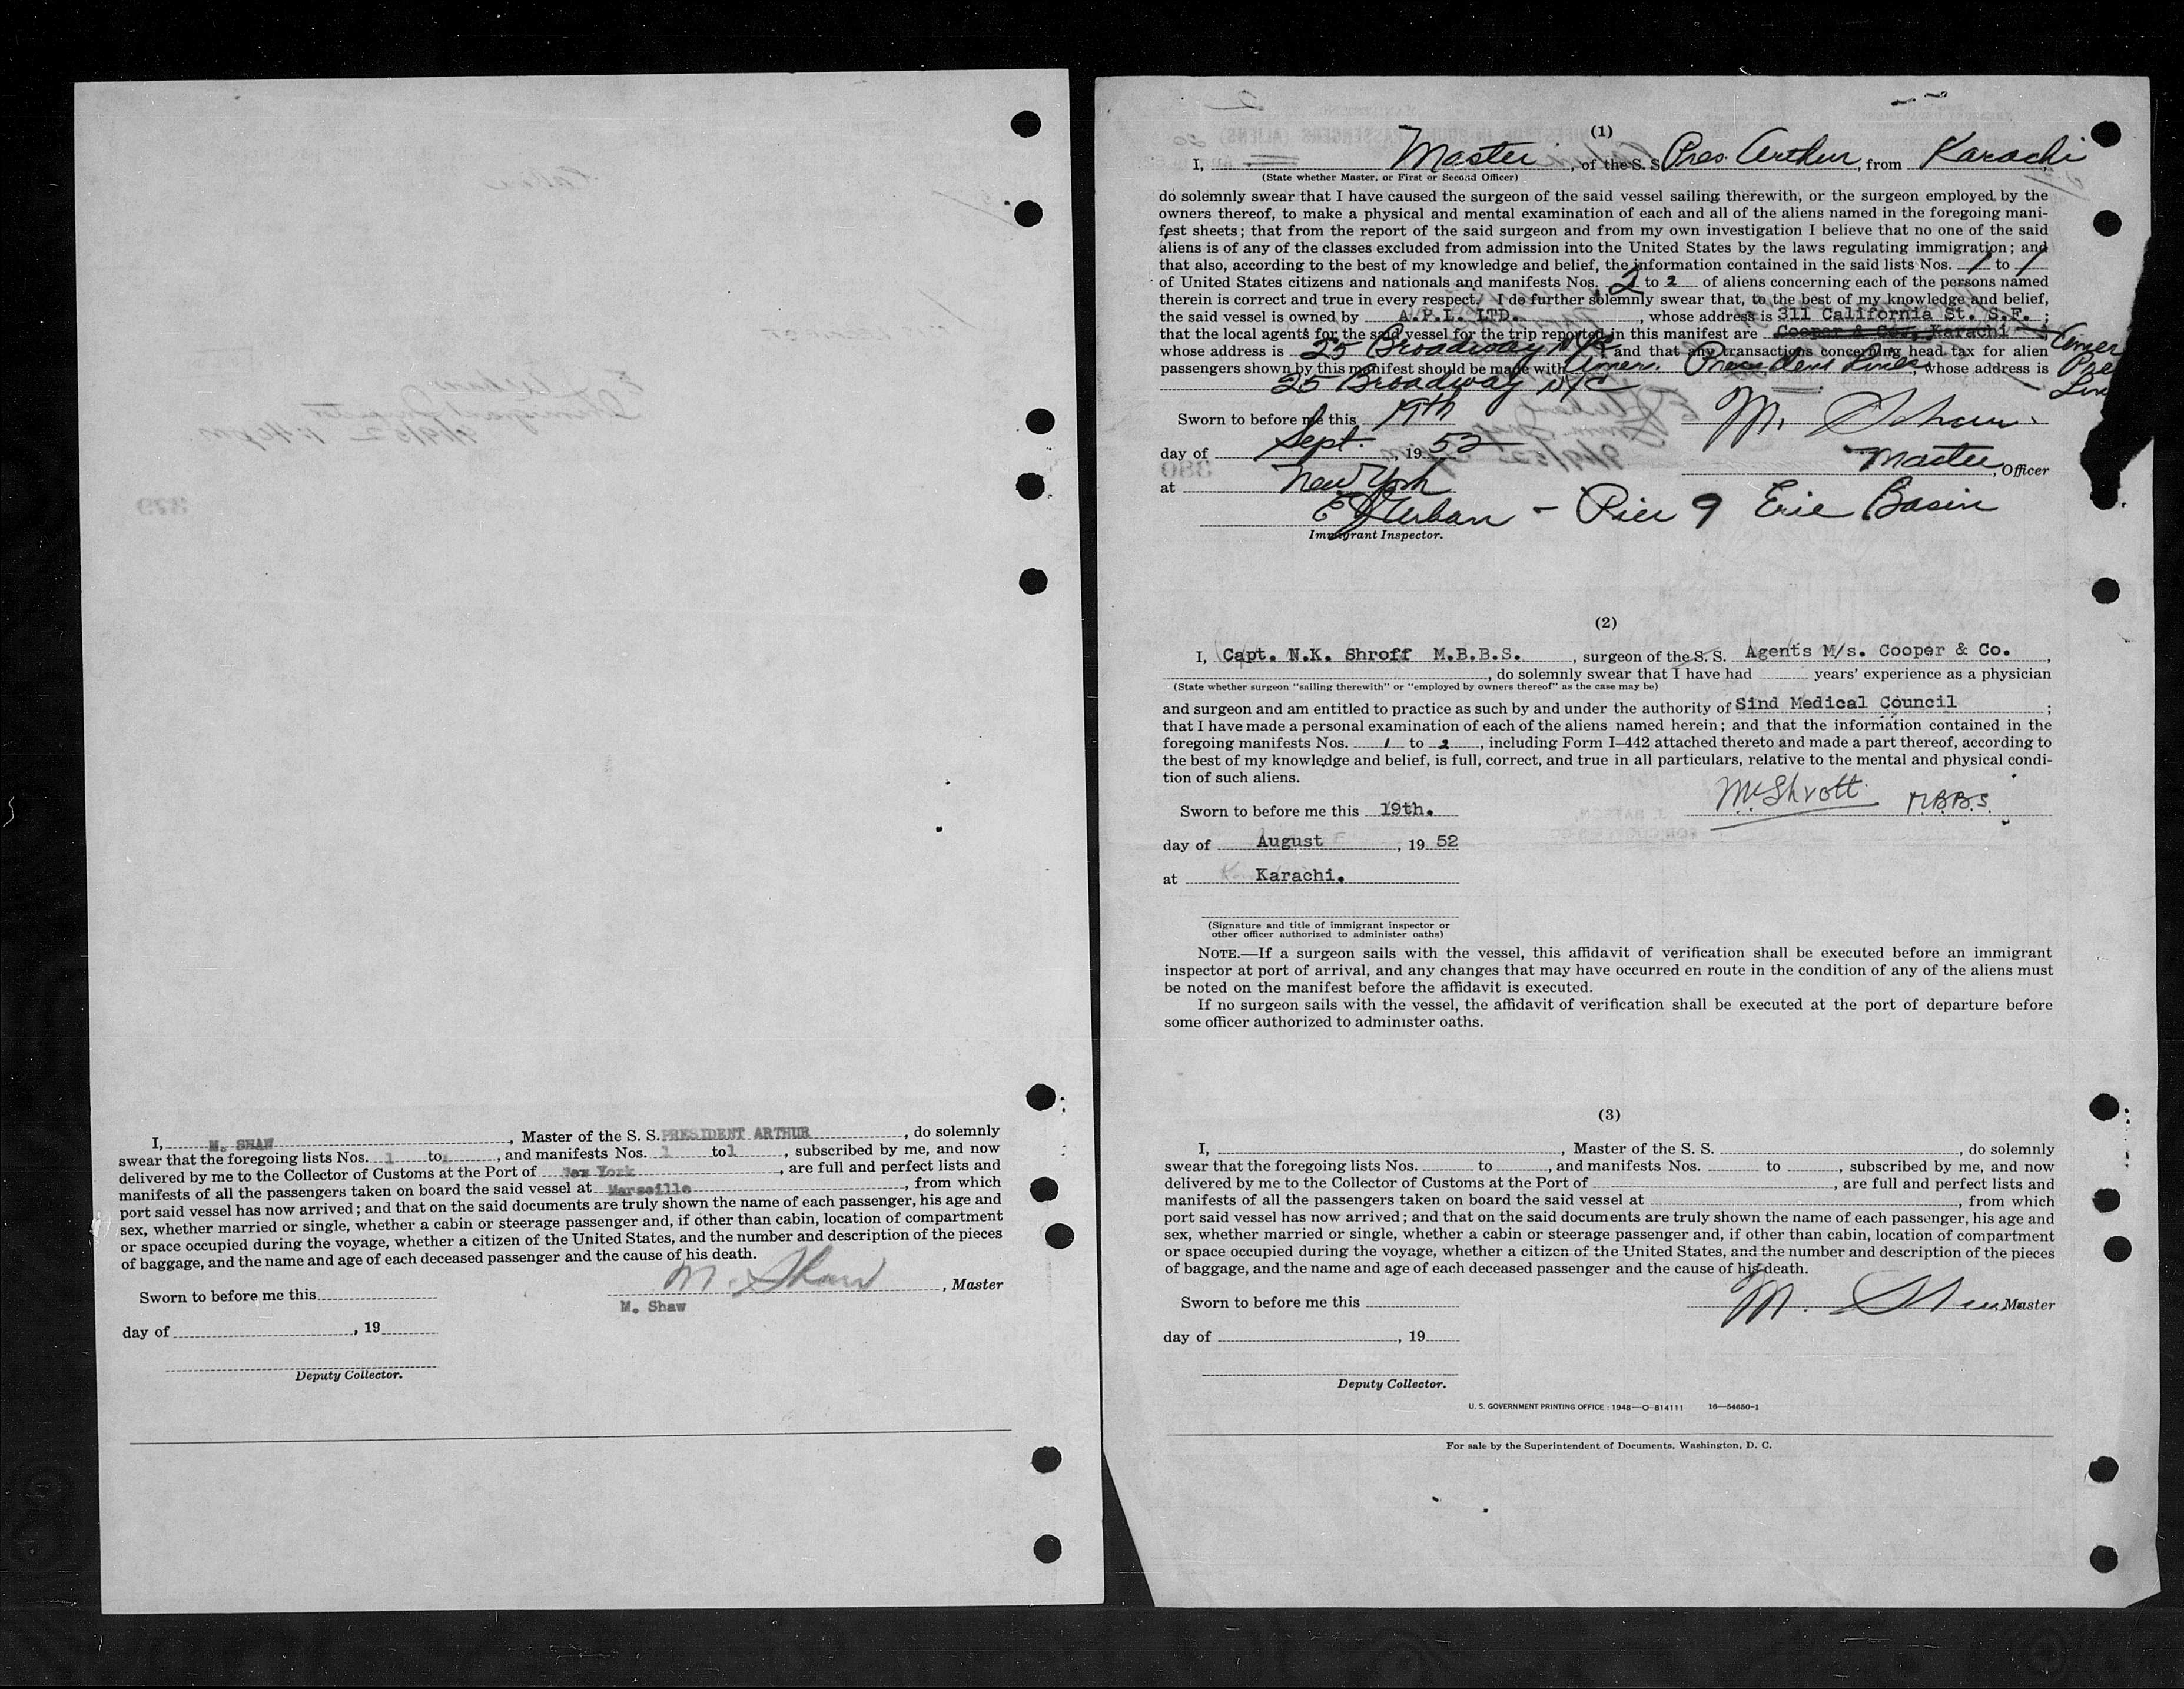 I, M. SHAW, Master of the S. S. PRESIDENT ARTHUR, do solemnly
swear that the foregoing lists Nos. 1 to 1, and manifests Nos. 1 to 1, subscribed by me, and now
delivered by me to the Collector of Customs at the Port of New York, are full and perfect lists and
manifests of all the passengers taken on board the said vessel at Marseille, from which
port said vessel has now arrived; and that on the said documents are truly shown the name of each passenger, his age and
sex, whether married or single, whether a cabin or steerage passenger and, if other than cabin, location of compartment
or space occupied during the voyage, whether a citizen of the United States, and the number and description of the pieces
of baggage, and the name and age of each deceased passenger and the cause of his death.
M. Shaw, Master
Sworn to before me this
M. Shaw
day of , 19
Deputy Collector.
(1)
I, Master, of the S. S. Pres. Arthur, from Karachi
(State whether Master, or First or Second Officer)
do solemnly swear that I have caused the surgeon of the said vessel sailing therewith, or the surgeon employed by the
owners thereof, to make a physical and mental examination of each and all of the aliens named in the foregoing mani-
fest sheets; that from the report of the said surgeon and from my own investigation I believe that no one of the said
aliens is of any of the classes excluded from admission into the United States by the laws regulating immigration; and
that also, according to the best of my knowledge and belief, the information contained in the said lists Nos. 1 to 1
of United States citizens and nationals and manifests Nos. 2 to 2 of aliens concerning each of the persons named
therein is correct and true in every respect. I do further solemnly swear that, to the best of my knowledge and belief,
the said vessel is owned by A.P.L. LTD., whose address is 311 California St. S.F. ;
that the local agents for the said vessel for the trip reported in this manifest are Cooper & Co., Karachi ; Amer
whose address is 25 Broadway NYC and that any transactions concerning head tax for alien Pre
passengers shown by this manifest should be made with Amer. President Lines, whose address is Line
25 Broadway NYC
Sworn to before me this 19th
M. Shaw
day of Sept. , 19 52
Master, Officer
at New York
E J Urban - Pier 9 Erie Basin
Immigrant Inspector.
(2)
I, Capt. N.K. Shroff M.B.B.S. , surgeon of the S. S. Agents M/s. Cooper & Co. ,
, do solemnly swear that I have had years' experience as a physician
(State whether surgeon "sailing therewith" or "employed by owners thereof" as the case may be)
and surgeon and am entitled to practice as such by and under the authority of Sind Medical Council ;
that I have made a personal examination of each of the aliens named herein; and that the information contained in the
foregoing manifests Nos. 1 to 2 , including Form I-442 attached thereto and made a part thereof, according to
the best of my knowledge and belief, is full, correct, and true in all particulars, relative to the mental and physical condi-
tion of such aliens.
Shroff M.B.B.S.
Sworn to before me this 19th.
day of August , 19 52
at Karachi.
(Signature and title of immigrant inspector or
other officer authorized to administer oaths)
NOTE.—If a surgeon sails with the vessel, this affidavit of verification shall be executed before an immigrant
inspector at port of arrival, and any changes that may have occurred en route in the condition of any of the aliens must
be noted on the manifest before the affidavit is executed.
If no surgeon sails with the vessel, the affidavit of verification shall be executed at the port of departure before
some officer authorized to administer oaths.
(3)
I, , Master of the S. S. , do solemnly
swear that the foregoing lists Nos. to , and manifests Nos. to , subscribed by me, and now
delivered by me to the Collector of Customs at the Port of , are full and perfect lists and
manifests of all the passengers taken on board the said vessel at , from which
port said vessel has now arrived; and that on the said documents are truly shown the name of each passenger, his age and
sex, whether married or single, whether a cabin or steerage passenger and, if other than cabin, location of compartment
or space occupied during the voyage, whether a citizen of the United States, and the number and description of the pieces
of baggage, and the name and age of each deceased passenger and the cause of his death.
Sworn to before me this
M. Shaw Master
day of , 19
Deputy Collector.
U. S. GOVERNMENT PRINTING OFFICE : 1948—O-814111 16—54650-1
For sale by the Superintendent of Documents, Washington, D. C.